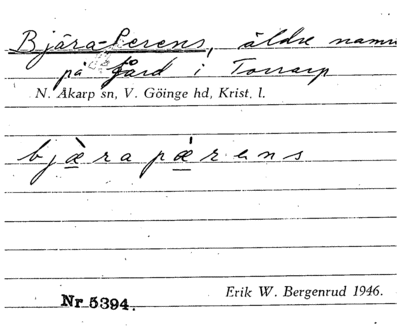 Bjära-Perens, äldre namn
på gård i Torrarp
N. Åkarp sn, V. Göinge hd, Krist. l.
bjæ̀rapæ̀rens
Erik W. Bergenrud 1946.
Nr 5394.